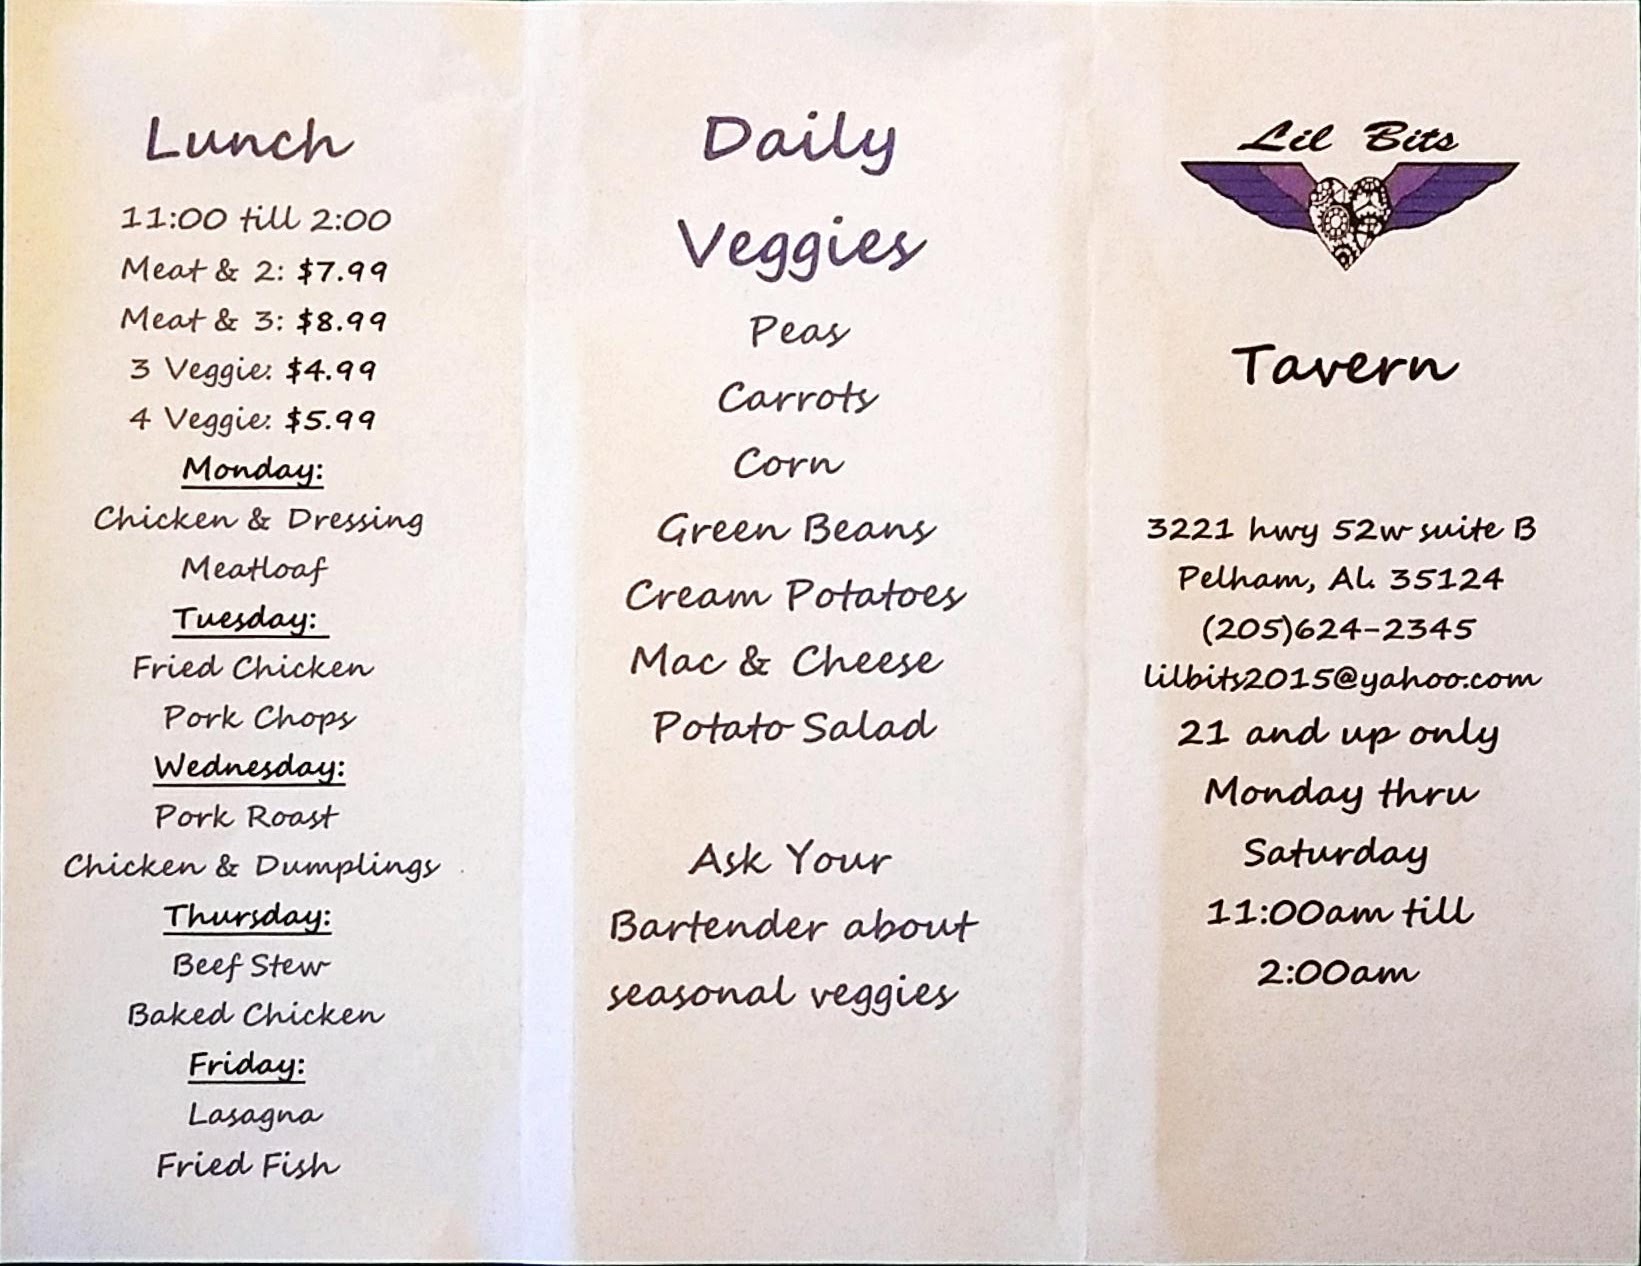 Lunch
11:00 till 2:00
Meat & 2: $7.99
Meat & 3: $8.99
3 Veggie: $4.99
4 Veggie: $5.99
Monday:
Chicken & Dressing
Meatloaf
Tuesday:
Fried Chicken
Pork Chops
Wednesday:
Pork Roast
Chicken & Dumplings
Thursday:
Beef Stew
Baked Chicken
Friday:
Lasagna
Fried Fish
Daily
Veggies
Peas
Carrots
Corn
Green Beans
Cream Potatoes
Mac & Cheese
Potato Salad
Ask Your
Bartender about
seasonal veggies
Lil Bits
Tavern
3221 hwy 52w suite B
Pelham, Al. 35124
(205)624-2345
lilbits2015@yahoo.com
21 and up only
Monday thru
Saturday
11:00am till
2:00am